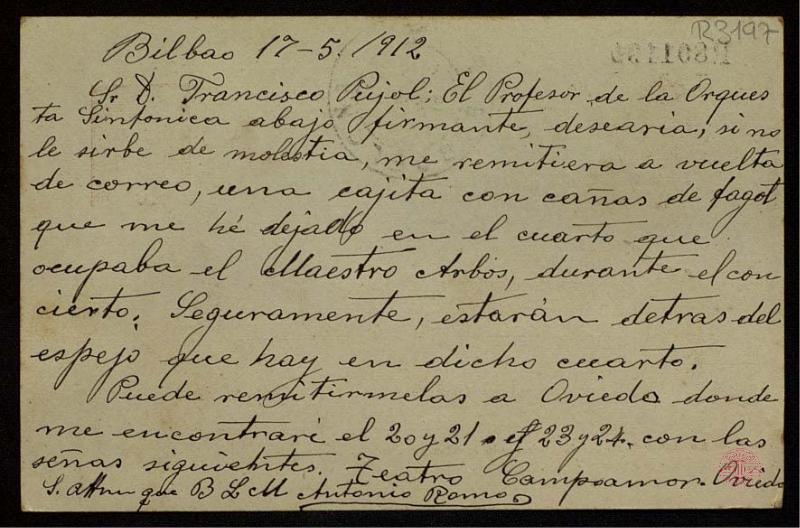 R3197
Bilbao 17-5. 1912
Sr D. Francisco Pujol; El Profesor de la Orques
ta Sinfonica abajo firmante, desearia, si no
le sirbe de molestia, me remitiera a vuelta
de correo, una cajita con cañas de fagot
que me hé dejado en el cuarto que
ocupaba el Maestro Arbós, durante el con
cierto. Seguramente, estarán detras del
espejo que hay en dicho cuarto.
Puede remitirmelas a Oviedo donde
me encontraré el 20 y 21 23 y 24. con las
señas siguientes. Teatro Campoamor. Oviedo
S. attmo que B L M Antonio Romo